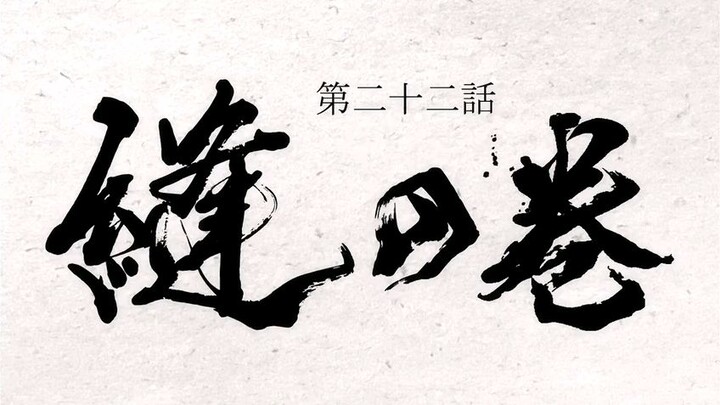 第二十二話
縫の巻